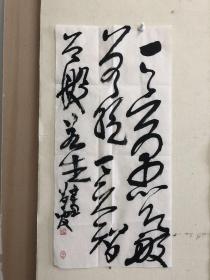 一念愚即般
若绝一念智
即般若生